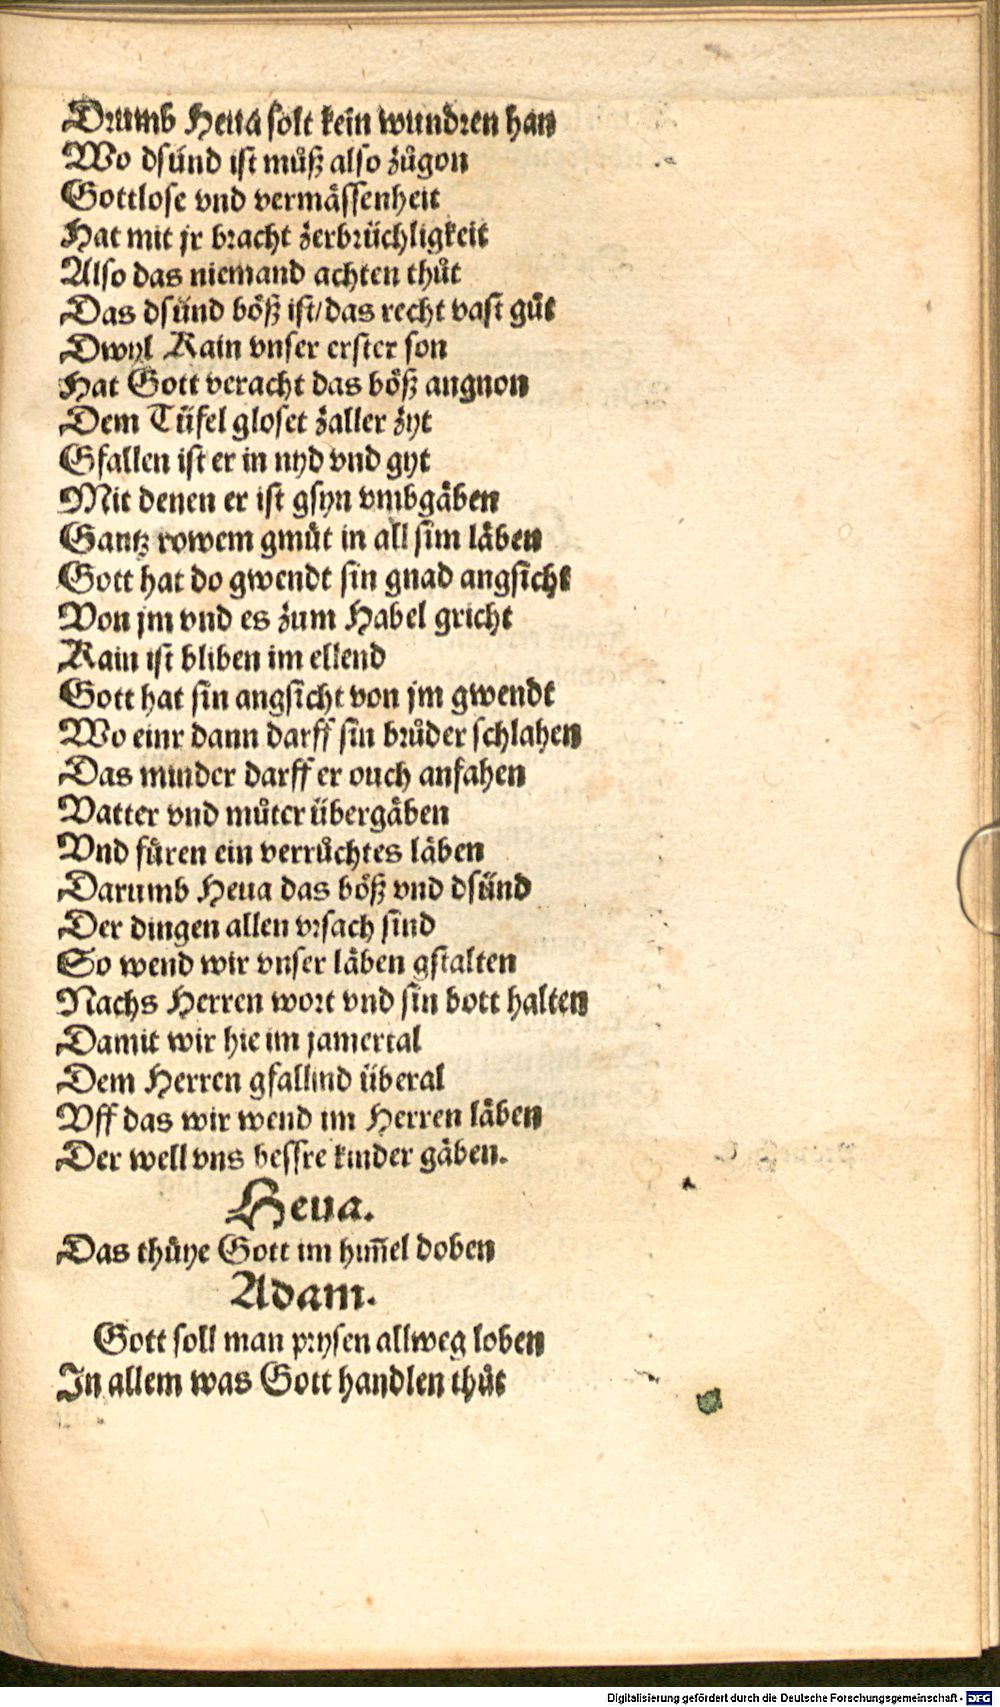 Drumb Heua solt kein wundren han
Wo dsünd ist můß also zůgon
Gottlose vnd vermässenheit
Hat mit jr bracht zerbrüchligkeit
Also das niemand achten thůt
Das dsünd böß ist/das recht vast gůt
Dwyl Kain vnser erster son
Hat Gott veracht das böß angnon
Dem Tüfel gloset zaller zyt
Gfallen ist er in nyd vnd gyt
Mit denen er ist gsyn vmbgäben
Gantz rowem gmůt in all sim läben
Gott hat do gwendt sin gnad angsicht
Von jm vnd es zum Habel gricht
Kain ist bliben im ellend
Gott hat sin angsicht von jm gwendt
Wo einr dann darff sin brůder schlahen
Das minder darff er ouch anfahen
Vatter vnd můter übergäben
Vnd füren ein verrůchtes läben
Darumb Heua das böß vnd dsünd
Der dingen allen vrsach sind
So wend wir vnser läben gstalten
Nachs Herren wort vnd sin bott halten
Damit wir hie im jamertal
Dem Herren gfallind überal
Vff das wir wend im Herren läben
Der well vns bessre kinder gäben.
Heua.
Das thüye Gott im him̄el doben
Adam.
Gott soll man prysen allweg loben
In allem was Gott handlen thůt
Digitalisierung gefördert durch die Deutsche Forschungsgemeinschaft - DFG